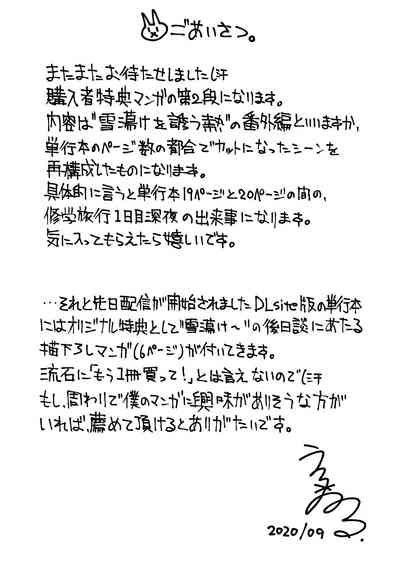 ごあいさつ。
またまたお待たせしました汗
購入者特典マンガの第2段になります。
内容は"雪蕩けを誘う熱"の番外編といいますか、
単行本のページ数の都合でカットになったシーンを
再構成したものになります。
具体的に言うと単行本19ページと20ページの間の、
修学旅行1日目深夜の出来事になります。
気に入ってもらえたら嬉しいです。
…それと先日配信が開始されましたDLsite版の単行本
にはオリジナル特典として"雪蕩け～"の後日談にあたる
描下ろしマンガ(6ページ)が付いてきます。
流石に「もう1冊買って!」とは言えないので汗
もし、周わりで僕のマンガに興味がありそうな方が
いれば、薦めて頂けるとありがたいです。
2020/09